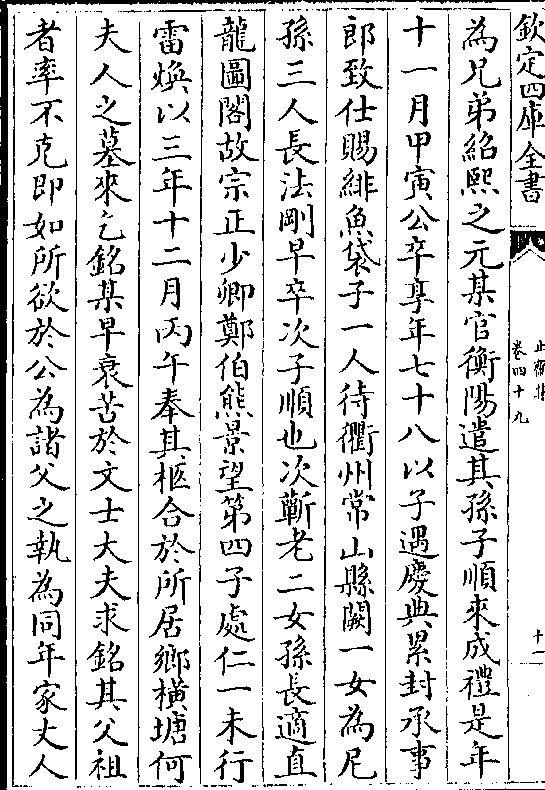 欽定四庫全書
止齋集
卷四十九
十一
為兄弟紹熙之元某官衡陽遣其孫子順來成禮是年
十一月甲寅公卒享年七十八以子遇慶典累封承事
郎致仕賜緋魚袋子一人待衢州常山縣闕一女為尼
孫三人長法剛早卒次子順也次蘄老二女孫長適直
龍圖閣故宗正少卿鄭伯熊景望第四子處仁一未行
雷煥以三年十二月丙午奉其柩合於所居鄉橫塘何
夫人之墓來乞銘某早衰苦於文士大夫求銘其父祖
者率不克即如所欲於公為諸父之執為同年家丈人